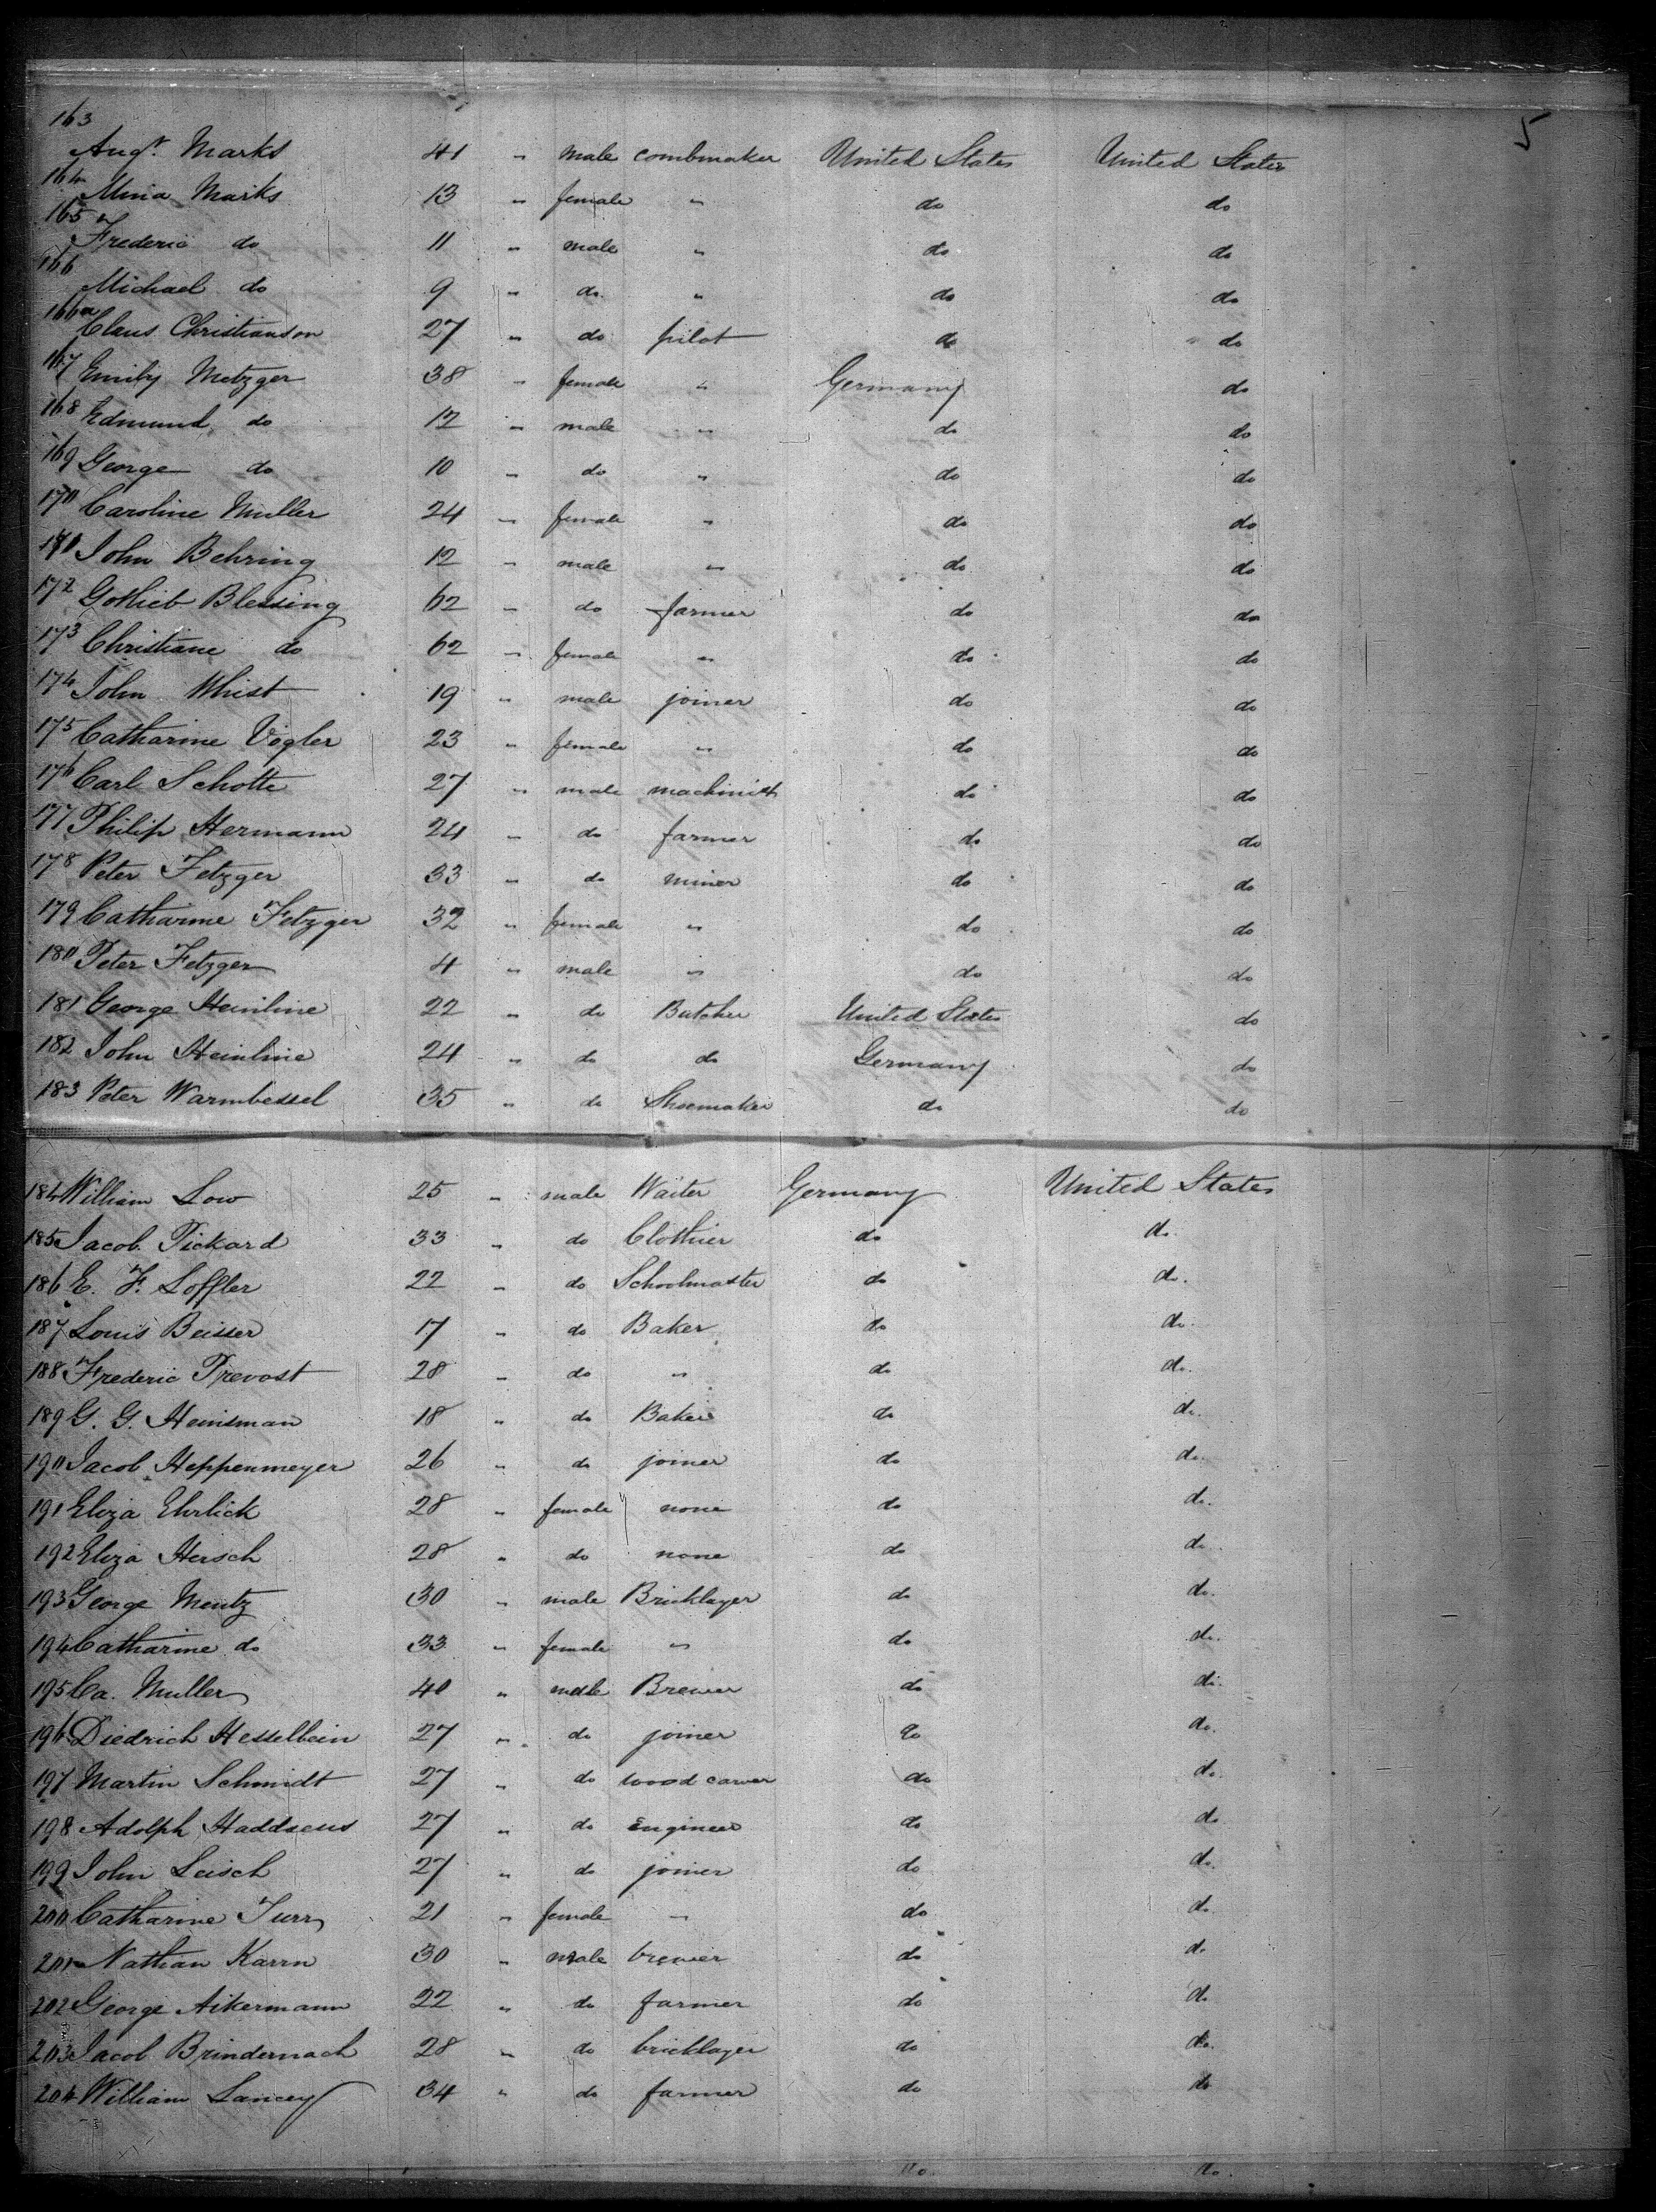 5
163
Augt. Marks 41 " male combmaker United States United States
164 Mina Marks 13 " female " do do
165 Frederic do 11 " male " do do
166 Michael do 9 " do " do do
166a Claus Christianson 27 " do pilot do do
167 Emily Metzger 38 " female " Germany do
168 Edmund do 12 " male " do do
169 George do 10 " do " do do
170 Caroline Muller 24 " female " do do
171 John Behring 12 " male " do do
172 Gottlieb Blessing 62 " do farmer do do
173 Christiane do 62 " female " do do
174 John Whist 19 " male joiner do do
175 Catharine Vogler 23 " female " do do
176 Carl Schotte 27 " male machinist do do
177 Philip Hermann 24 " do farmer do do
178 Peter Fetzger 33 " do miner do do
179 Catharine Fetzger 32 " female " do do
180 Peter Fetzger 4 " male " do do
181 George Heinline 22 " do Butcher United States do
182 John Heinline 24 " do do Germany do
183 Peter Warmbessel 35 " do Shoemaker do do
184 William Low 25 " male Waiter Germany United States
185 Jacob Pickard 33 " do Clothier do do.
186 E. F. Loffler 22 " do Schoolmaster do do.
187 Louis Beisser 17 " do Baker do do.
188 Frederic Prevost 28 " do " do do.
189 G. G. Heinsman 18 " do Baker do do.
190 Jacob Heppenmeyer 26 " do joiner do do.
191 Eliza Ehrlick 28 " female none do do.
192 Eliza Hersch 28 " do none do do.
193 George Mentz 30 " male Bricklayer do do.
194 Catharine do 33 " female " do do.
195 Ca. Muller 40 " male Brewer do do.
196 Diedrich Hesselbein 27 " do joiner do do.
197 Martin Schmidt 27 " do wood carver do do.
198 Adolph Haddaeus 27 " do Engineer do do
199 John Leisch 27 " do joiner do do.
200 Catharine Turr 21 " female " do do.
201 Nathan Karrn 30 " male brewer do do
202 George Aikermann 22 " do farmer do do
203 Jacob Brindernach 28 " do bricklayer do do.
204 William Lancey 34 " do farmer do do
do. do.